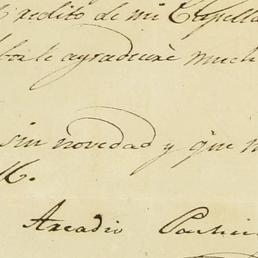 redito de mi Capella
le agradeceré much
sin novedad y que
16.
Arcadio